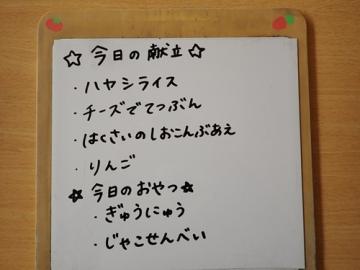 ☆今日の献立☆
・ハヤシライス
・チーズでてつぶん
・はくさいのしおこんぶあえ
・りんご
☆今日のおやつ☆
・ぎゅうにゅう
・じゃこせんべい